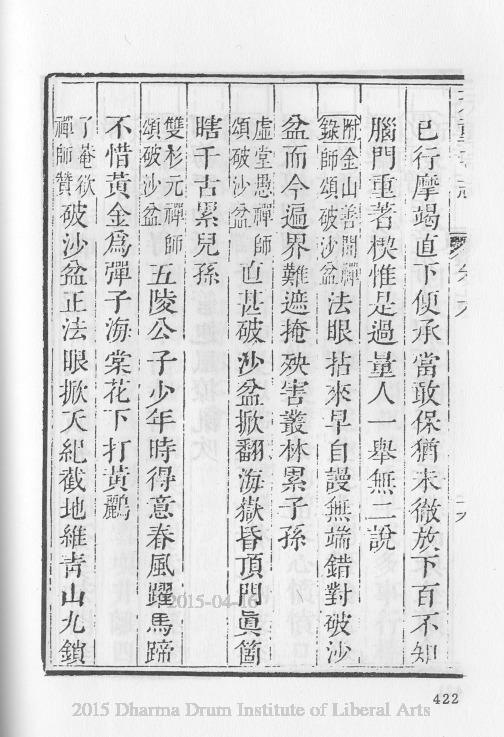 已行摩竭直下便承當敢保猶未徹放下百不知
腦門重著楔惟是過量人一舉無二說
附金山善開禪
師頌破沙盆
錄
法眼拈來早自謾無端錯對破沙
盆而今遍界難遮掩殃害叢林累子孫
虛堂愚禪師
頌破沙盆
直甚破沙盆掀翻海嶽昏頂門眞箇
瞎千古累兒孫
雙杉元禪師
頌破沙盆
五陵公子少年時得意春風躍馬蹄
不惜黃金爲彈子海棠花下打黃鸝
了菴欲
禪師贊
破沙盆正法眼掀天紀截地維靑山九鎖
2015-04-16
422
2015 Dharma Drum Institute of Liberal Arts